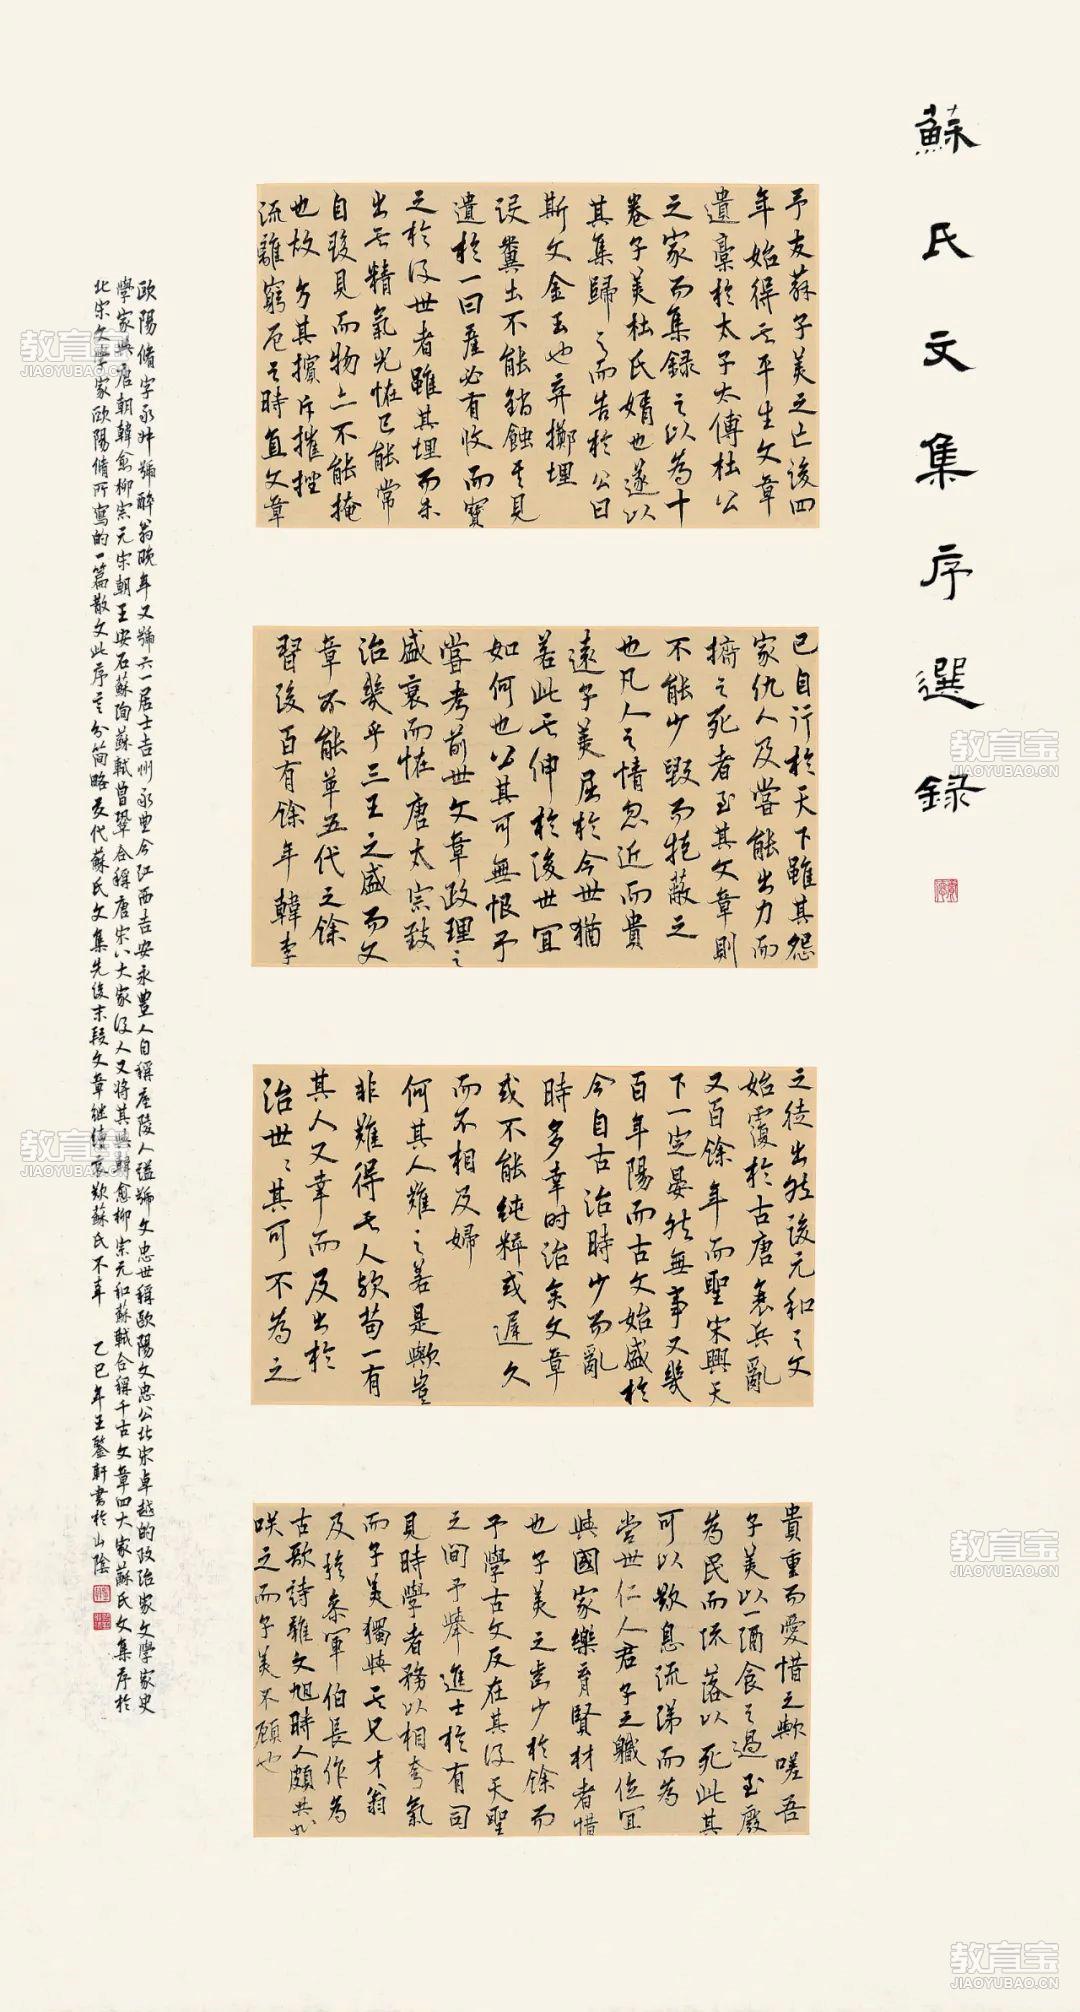 蘇氏文集序選録
予友蘇子美之亡後四
年始得其平生文章
遺稾於太子太傅杜公
之家而集録之以為十
卷子美杜氏婿也遂以
其集歸之而告於公曰
斯文金玉也棄擲埋
没糞土不能銷蝕其見
遺於一日產必有收而寶
之於後世者雖其埋而未
出其精氣光怪已能常
自發見而物亦不能掩
也故方其擯斥摧挫
流離窮厄之時直文章
已自行於天下雖其怨
家仇人及嘗能出力而
擠之死者至其文章則
不能少毀而掩蔽之
也凡人之情忽近而貴
遠子美屈於今世猶
若此其伸於後世宜
如何也公其可無恨予
嘗考前世文章政理之
盛衰而怪唐太宗致
治幾乎三王之盛而文
章不能革五代之餘
習後百有餘年韓李
之徒出然後元和之文
始覆於古唐衰兵亂
又百餘年而聖宋興天
下一定晏然無事又幾
百年陽而古文始盛於
今自古治時少而亂
時多幸時治矣文章
或不能純粹或遲久
而不相及婦
何其人難之若是歟豈
非難得其人歟苟一有
其人又幸而及出於
治世〻其可不為之
貴重而愛惜之歟嗟吾
子美以一酒食之過至廢
為民而流落以死此其
可以歎息流涕而為
當世仁人君子之職位宜
與國家樂育賢材者惜
也子美之齒少於餘而
予學古文反在其後天聖
之間予舉進士於有司
見時學者務以相夸氣
而子美獨與其兄才翁
及穆參軍伯長作為
古歌詩雜文旭時人頗共非
咲之而子美不顧也
歐陽脩字永叔號醉翁晚年又號六一居士吉州永豐今江西吉安永豐人自稱廬陵人謚號文忠世稱歐陽文忠公北宋卓越的政治家文學家史
學家與唐朝韓愈柳宗元宋朝王安石蘇洵蘇軾曾鞏合稱唐宋八大家後人又將其與韓愈柳宗元和蘇軾合稱千古文章四大家蘇氏文集序於
北宋文學家歐陽脩所寫的一篇散文此序言分簡略交代蘇氏文集先後末段文章繼續哀歎蘇氏不幸 乙巳年王鑒軒書於山陰
教育宝
JIAOYUBAO.CN
教育宝
JIAOYUBAO.CN
教育宝
JIAOYUBAO.CN
教育宝
JIAOYUBAO.CN
教育宝
JIAOYUBAO.CN